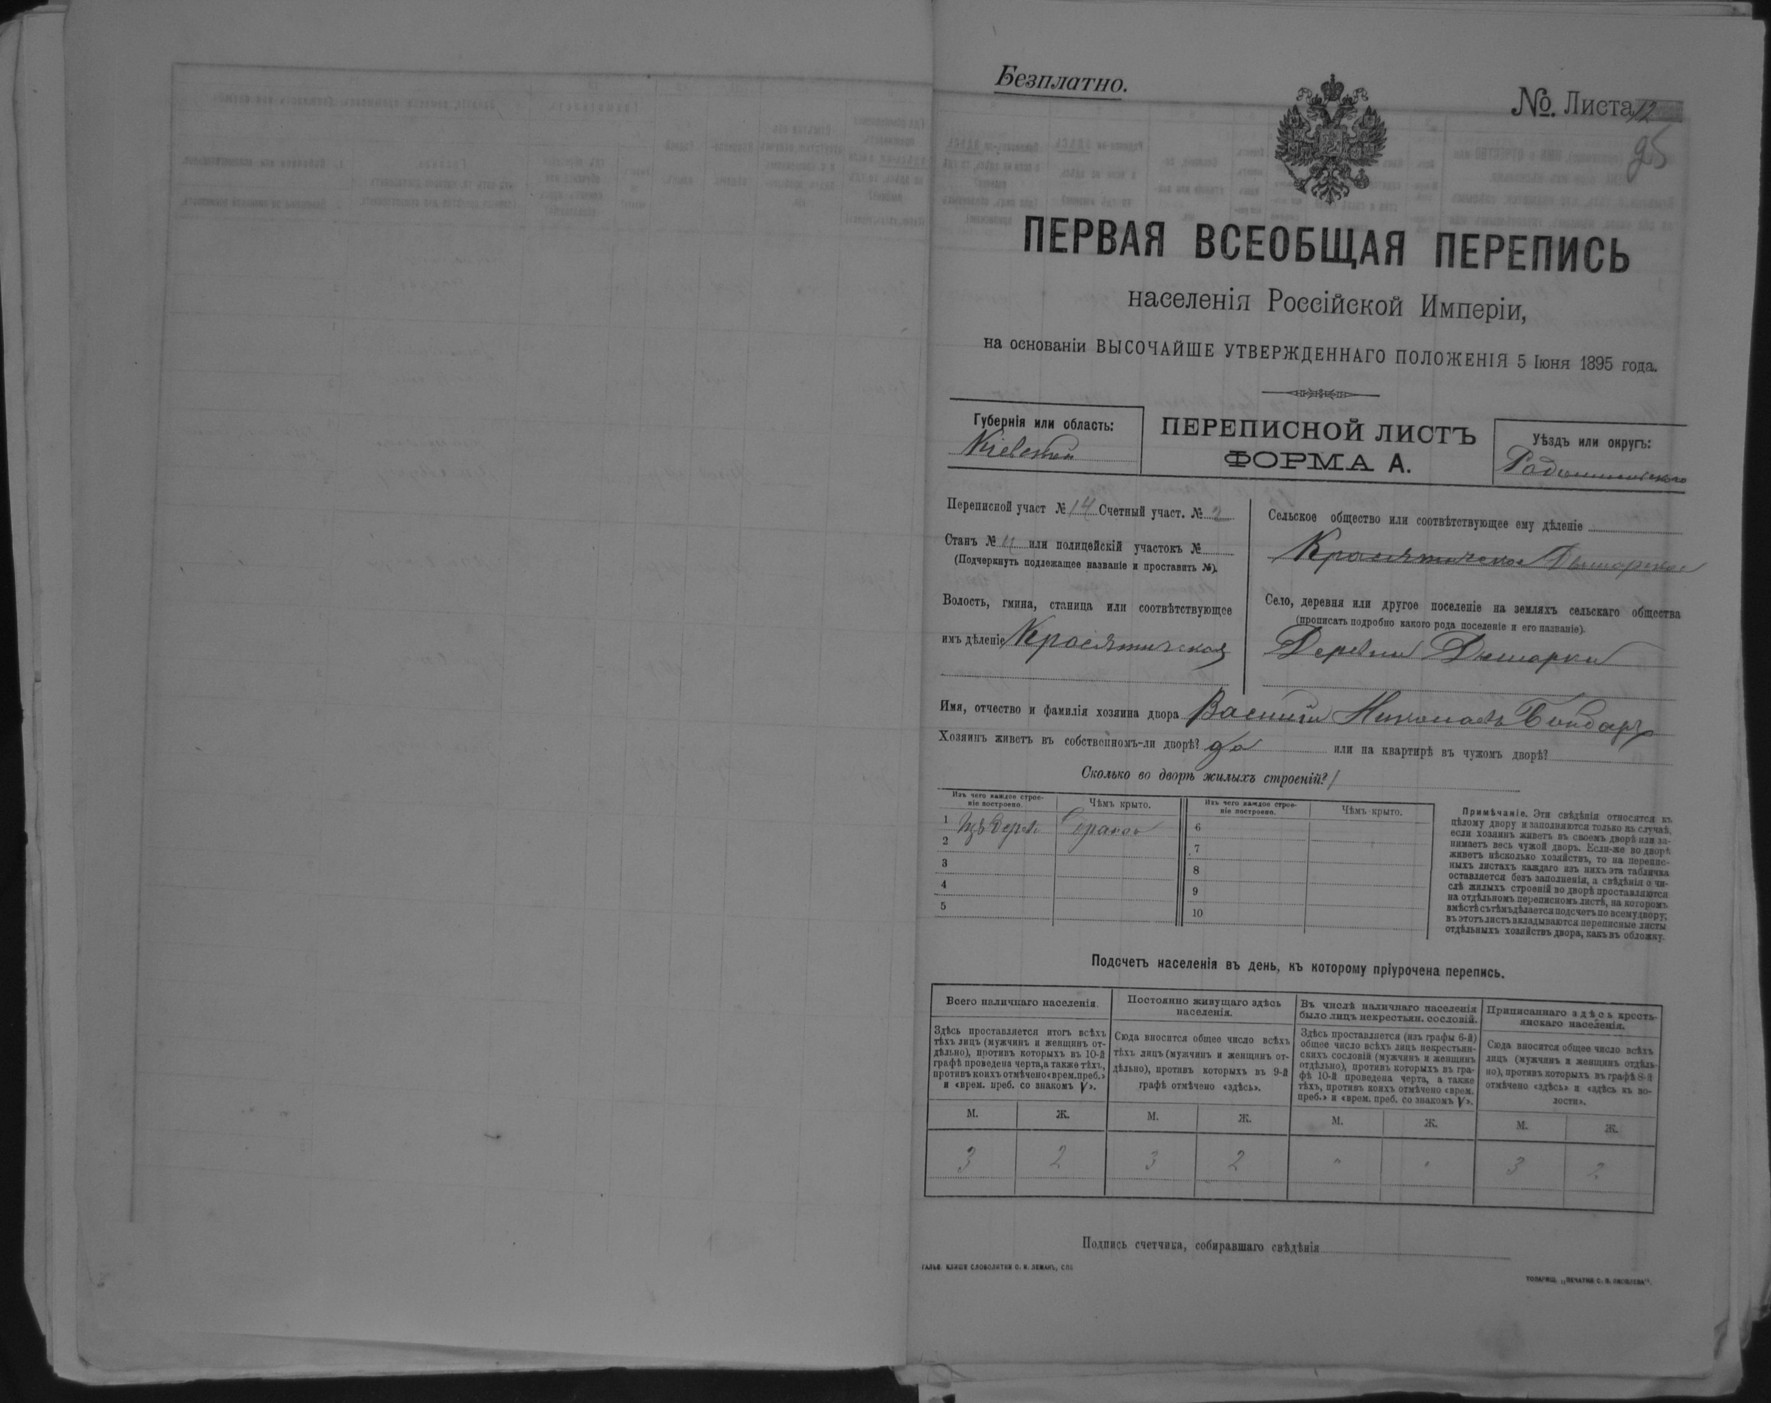 Безплатно.
№. Листа 12
95
ПЕРВАЯ ВСЕОБЩАЯ ПЕРЕПИСЬ
населенія Россійской Имперіи,
на основаніи ВЫСОЧАЙШЕ УТВЕРЖДЕННАГО ПОЛОЖЕНІЯ 5 Іюня 1895 года.
Губернія или область:
ПЕРЕПИСНОЙ ЛИСТЪ
ФОРМА А.
Уѣздъ или округъ:
Переписной участ № 14 Счетный участ. № 2
Станъ № или полицейскій участокъ №
(Подчеркнуть подлежащее названіе и проставить №).
Волость, гмина, станица или соотвѣтствующее
имъ дѣленіе Красятичская
Сельское общество или соотвѣтствующее ему дѣленіе
Красятичское
Село, деревня или другое поселеніе на земляхъ сельскаго общества
(прописать подробно какого рода поселеніе и его названіе).
Деревня
Имя, отчество и фамилія хозяина двора Василій Николаевъ Бондарь
Хозяинъ живетъ въ собственномъ-ли дворѣ? да или на квартирѣ въ чужомъ дворѣ?
Сколько во дворѣ жилыхъ строеній? 1
Изъ чего каждое строе-
ніе построено.
Чѣмъ крыто.
Изъ чего каждое строе-
ніе построено.
Чѣмъ крыто.
1 Изъ дерев.
6
2
7
3
8
4
9
5
10
Примѣчаніе. Эти свѣдѣнія относятся къ
цѣлому двору и заполняются только въ случаѣ,
если хозяинъ живетъ въ своемъ дворѣ или за-
нимаетъ весь чужой дворъ. Если-же во дворѣ
живетъ нѣсколько хозяйствъ, то на перепис-
ныхъ листахъ каждаго изъ нихъ эта табличка
оставляется безъ заполненія, а свѣдѣнія о чи-
слѣ жилыхъ строеній во дворѣ проставляются
на отдѣльномъ переписномъ листѣ, на которомъ
вмѣстѣ съ тѣмъ дѣлается подсчетъ по всему двору;
въ этотъ листъ вкладываются переписные листы
отдѣльныхъ хозяйствъ двора, какъ въ обложку.
Подсчетъ населенія въ день, къ которому пріурочена перепись.
Всего наличнаго населенія.
Здѣсь проставляется итогъ всѣхъ
тѣхъ лицъ (мужчинъ и женщинъ от-
дѣльно), противъ которыхъ въ 10-й
графѣ проведена черта, а также тѣхъ,
противъ коихъ отмѣчено «врем. преб.»
и «врем. преб. со знакомъ V».
Постоянно живущаго здѣсь
населенія.
Сюда вносится общее число всѣхъ
тѣхъ лицъ (мужчинъ и женщинъ от-
дѣльно), противъ которыхъ въ 9-й
графѣ отмѣчено «здѣсь».
Въ числѣ наличнаго населенія
было лицъ некрестьян. сословій.
Здѣсь проставляется (изъ графы 6-й)
общее число всѣхъ лицъ некрестьян-
скихъ сословій (мужчинъ и женщинъ
отдѣльно), противъ которыхъ въ гра-
фѣ 10-й проведена черта, а также
тѣхъ, противъ коихъ отмѣчено «врем.
преб.» и «врем. преб. со знакомъ V».
Приписаннаго здѣсь кресть-
янскаго населенія.
Сюда вносится общее число всѣхъ
лицъ (мужчинъ и женщинъ отдѣль-
но), противъ которыхъ въ графѣ 8-й
отмѣчено «здѣсь» и «здѣсь къ во-
лости».
М. Ж. М. Ж. М. Ж. М. Ж.
3 2 3 2 " " 3 2
Подпись счетчика, собиравшаго свѣдѣнія
ГАЛЬВ. КЛИШЕ СЛОВОЛИТНИ О. И. ЛЕМАНЪ, СПБ